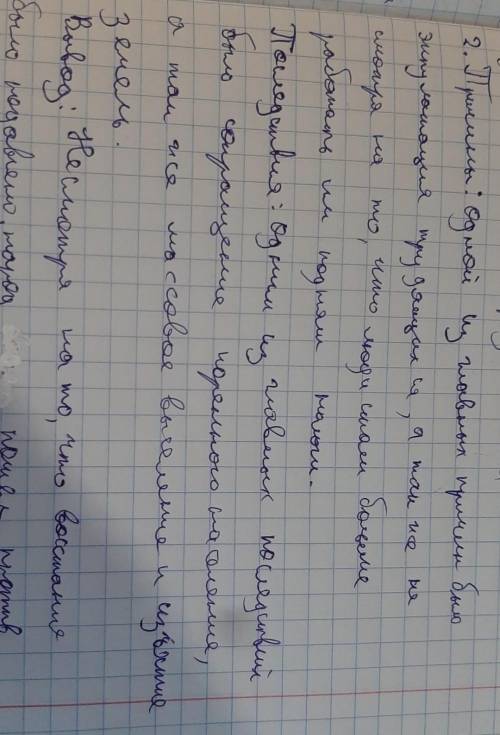 2. Причины: одной из главных причин было
эксплотация трудящихся, а так же не
смотря на то, что люди стали больше
работать им подняли налог.
Последствия: одним из главных последствий
было сокращение коренного населения,
а так же массовое выселение и изъятие
земель.
Вывод: Несмотря на то, что восстание
было подавлено, народ пошел против